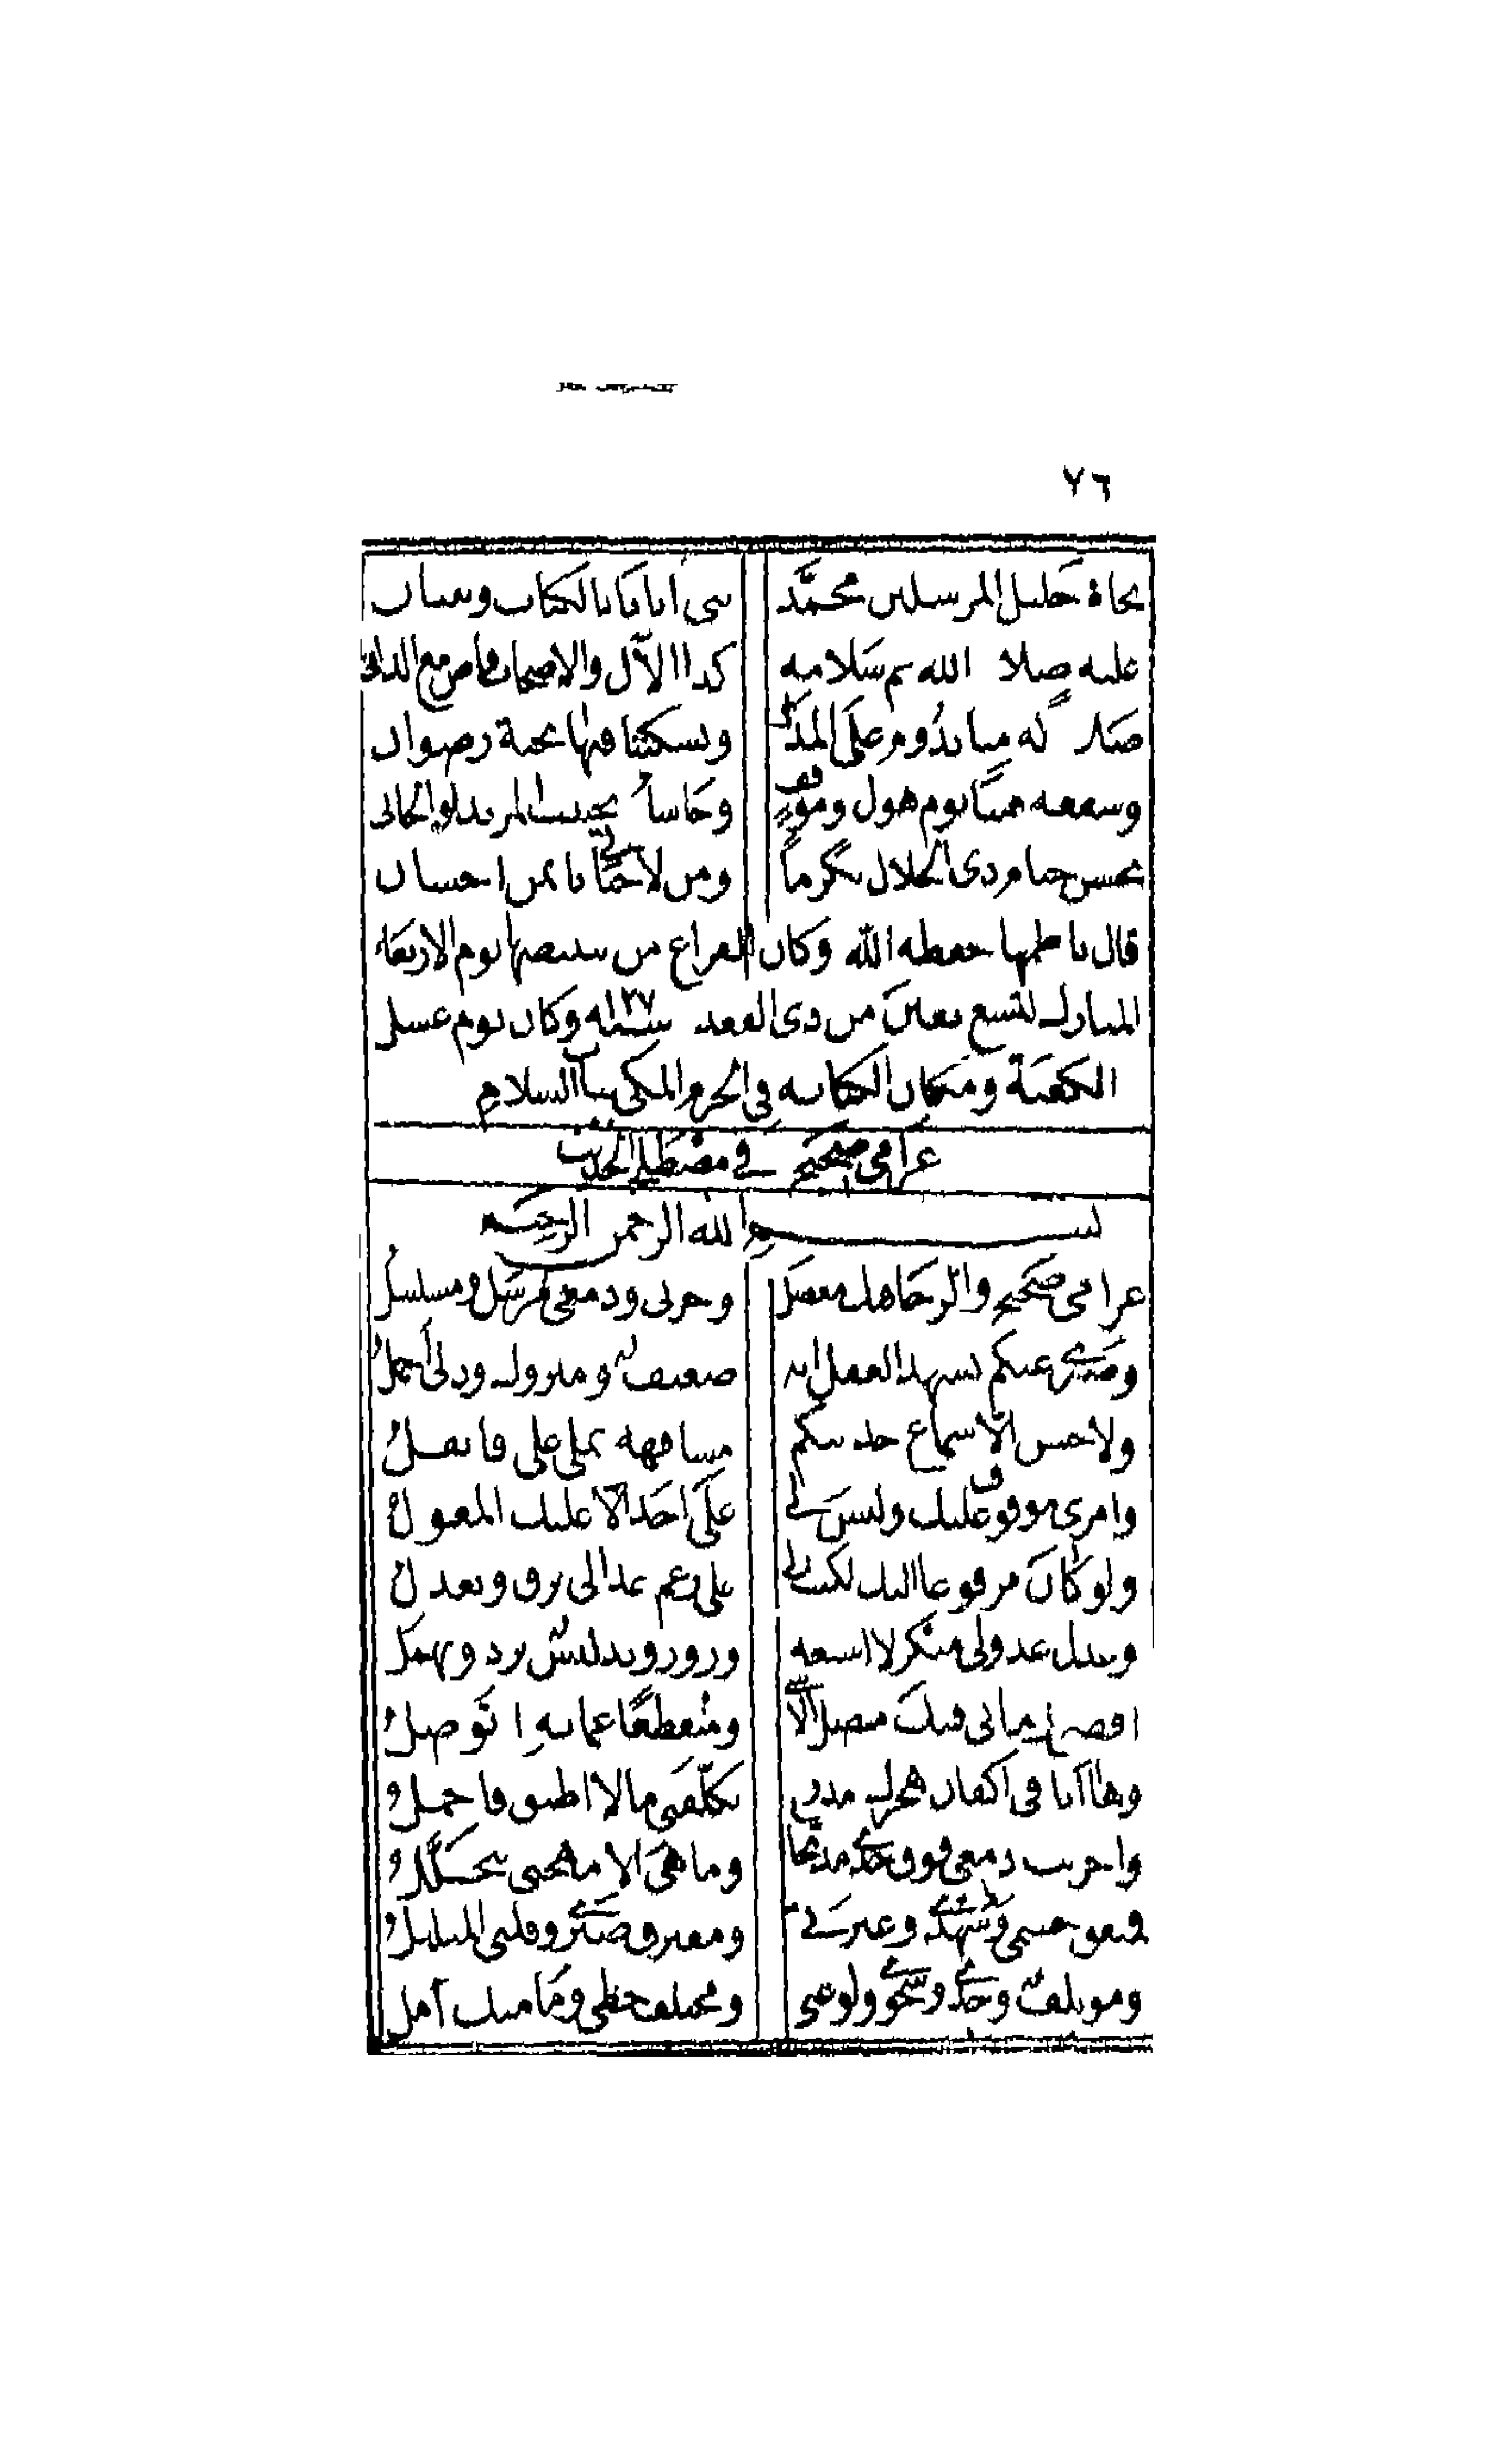 ٧٦
بجاه جليل المرسلين محمد نبي اتانا بالكتاب وتبيان
عليه صلاة الله ثم سلامه كذا الآل والاصحاب
صلاة له منا تدوم على المدى ويسكننا فيها بجنة رضوان
وشفعه فينا يوم هول وموقف وحاشا يخيب المرء
بحسن ختام ذي الجلال تكرما ومن لاحسان
قال ناظمها حفظه الله وكان الفراغ من تبييضها يوم الاربعاء
المبارك لتسع بقين من ذي القعد سنة وكان يوم غسل
الكعبة ومكان الكتابه في الحرم المكي بباب السلام
غرامي صحيح في مصطلح الحديث
بسم الله الرحمن الرحيم
غرامي صحيح والرجا فيك معضل وحزني ودمعي مرسل ومسلسل
وصبري عنكم يشهد العقل انه ضعيف ومتروك وذلي اجمل
ولا حسن الا سماع حديثكم مشافهة يملى علي فانقل
وامري موقوف عليك وليس لي على احد الا عليك المعول
ولو كان مرفوعا اليك لكنت لي على رغم عذالي ترق وتعدل
وعذل عذولي منكر لا اسيغه وزور وتدليس يرد ويهمل
اقضي زماني فيك متصل الاسى ومنقطعا عما به اتوصل
وها انا في اكفان هجرك مدرج تكلفني مالا اطيق فاحمل
واجريت دمعي فوق خدي مدبجا وما هي الا مهجتي تتحلل
فمتفق جسمي وسهدي وعبرتي ومفترق صبري وقلبي المبلبل
وموتلف وجدي وشجوي ولوعتي ومختلف حظي وما منك آمل